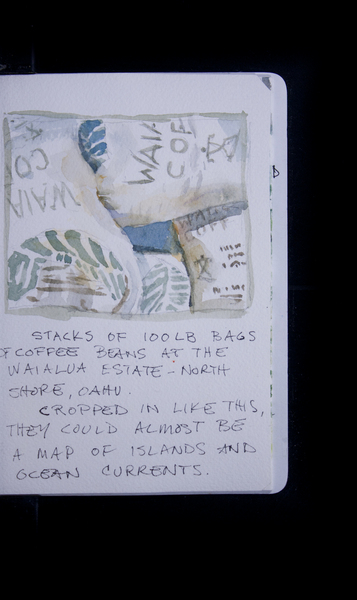 WAIA
COF
WAIA
CO
WAIA
STACKS OF 100LB BAGS
OF COFFEE BEANS AT THE
WAIALUA ESTATE - NORTH
SHORE, OAHU.
CROPPED IN LIKE THIS,
THEY COULD ALMOST BE
A MAP OF ISLANDS AND
OCEAN CURRENTS.